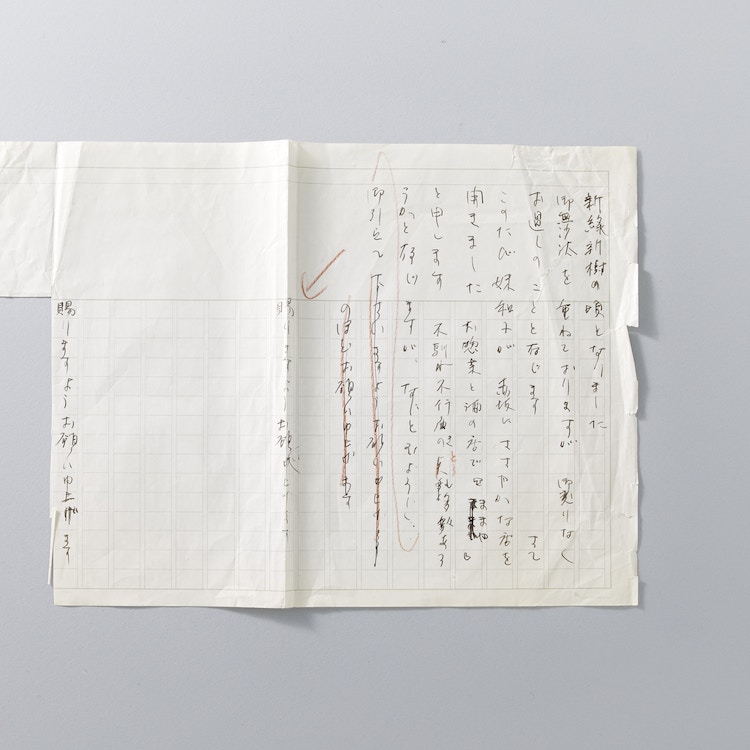 新緑新樹の頃となりました
御無沙汰を重ねておりますが　お変りなく
お過しのことと存じます　さて
このたび妹和子が　赤坂にささやかな店を
開きました　お惣菜と酒の店で「ままや」
と申します　不馴れ不行届の点も多々ある
うかと存じますが、なにとぞよろしく、
御引立て下さいますようお願い申上げます
のほどお願い申上げます
賜りますようお願い申上げます
賜りますようお願い申上げます